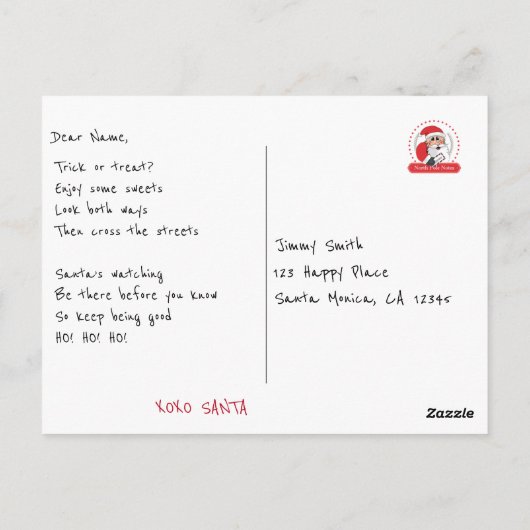 Dear Name,
Trick or treat?
Enjoy some sweets
Look both ways
Then cross the streets
Santa's watching
Be there before you know
So keep being good
HO! HO! HO!
XOXO SANTA
North Pole Notes
Jimmy Smith
123 Happy Place
Santa Monica, CA 12345
Zazzle